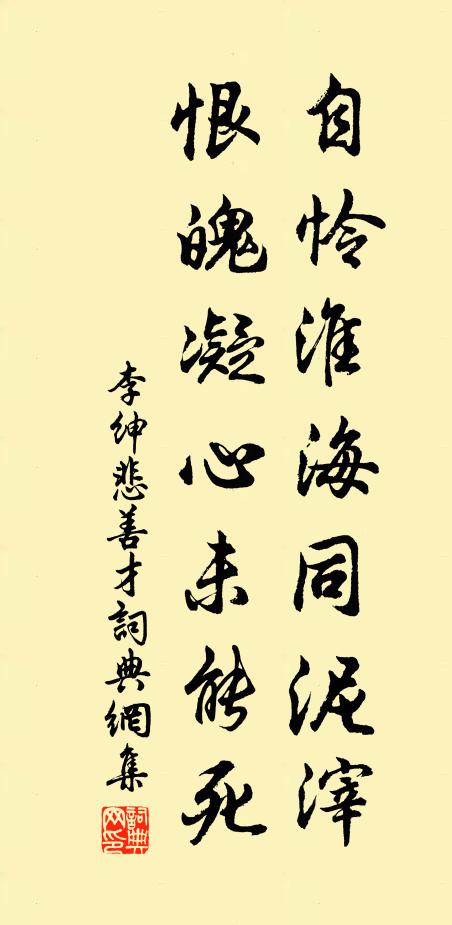 自怜淮海同泥滓
恨魄凝心未能死
李绅悲善才詞典網集
詞典網印